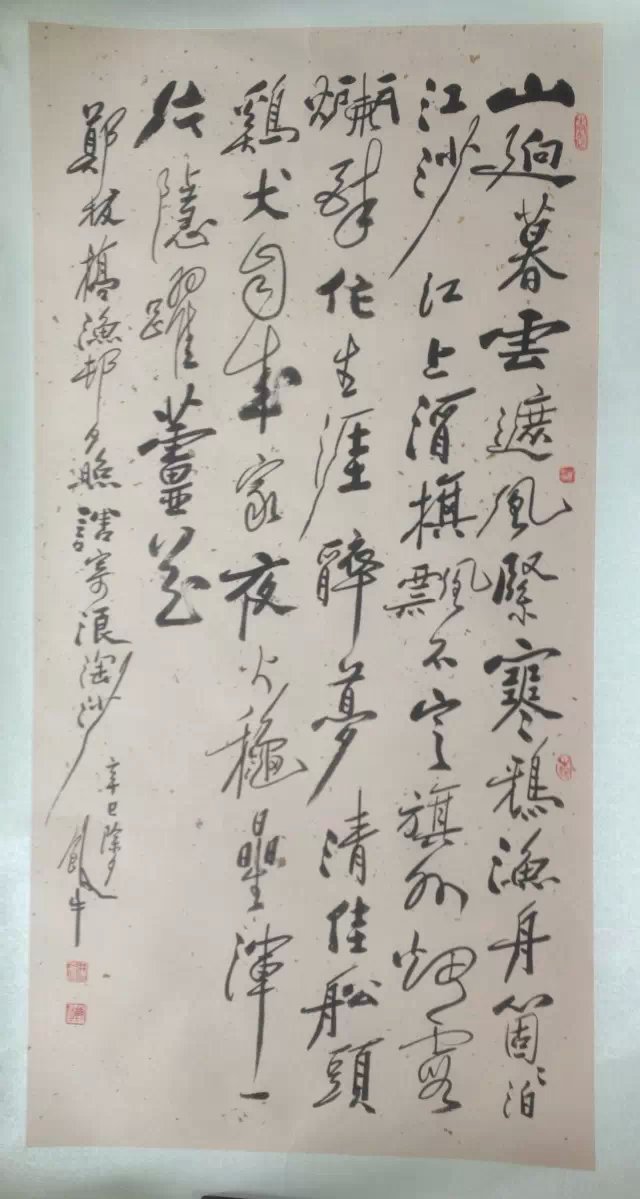 山迥暮雲遮風緊寒鴉漁舟箇〻泊
江沙江上酒旗飄不定旗外烟霞
爛醉作生涯醉夢清佳船頭
鷄犬自成家夜火穐曐渾一
片隱躍蘆花
鄭板橋漁邨夕照調寄浪淘沙
辛巳除夕